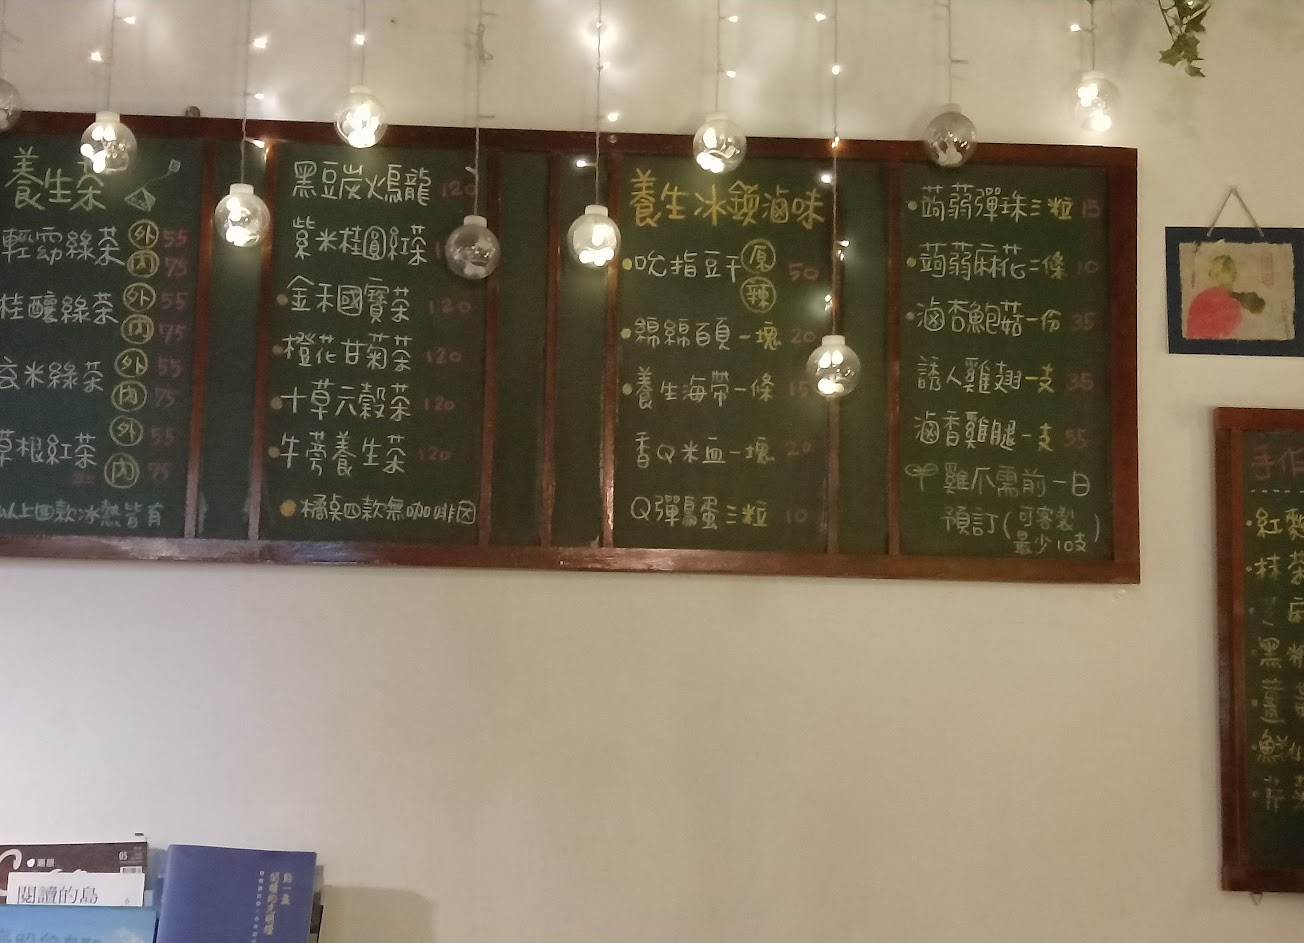 養生茶
輕窈綠茶 外 55
內 75
桂釀綠茶 外 55
內 75
玄米綠茶 外 55
內 75
草根紅茶 外 55
內 75
以上四款冰熱皆有
黑豆炭火烏龍 120
紫米桂圓紅茶
金禾國寶茶 120
橙花甘菊茶 120
十草元穀茶 120
牛蒡養生茶 120
橘點四款無咖啡因
養生冰鎮滷味
吮指豆干 原 辣 50
綿綿百頁一塊 20
養生海帶一條 15
香Q米血一塊 20
Q彈鳥蛋三粒 10
蒟蒻彈珠三粒 15
蒟蒻麻花二條 10
滷杏鮑菇一份 35
誘人雞翅一支 35
滷香雞腿一支 55
雞爪需前一日
預訂(可客製
最少10支)
手作
紅
抹茶
麻
黑糖
鮮
05
閱讀的島